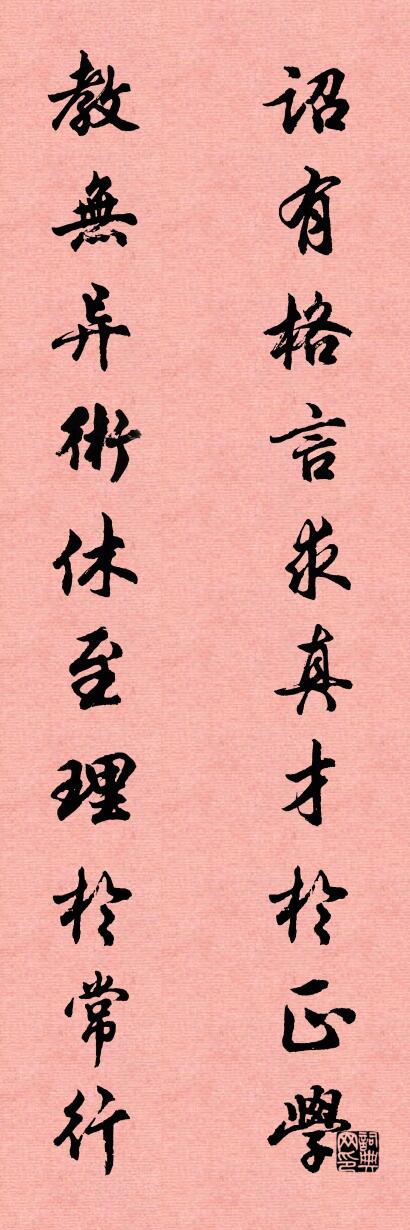 詔有格言求真才於正學
教無异術休至理於常行
詞典網印